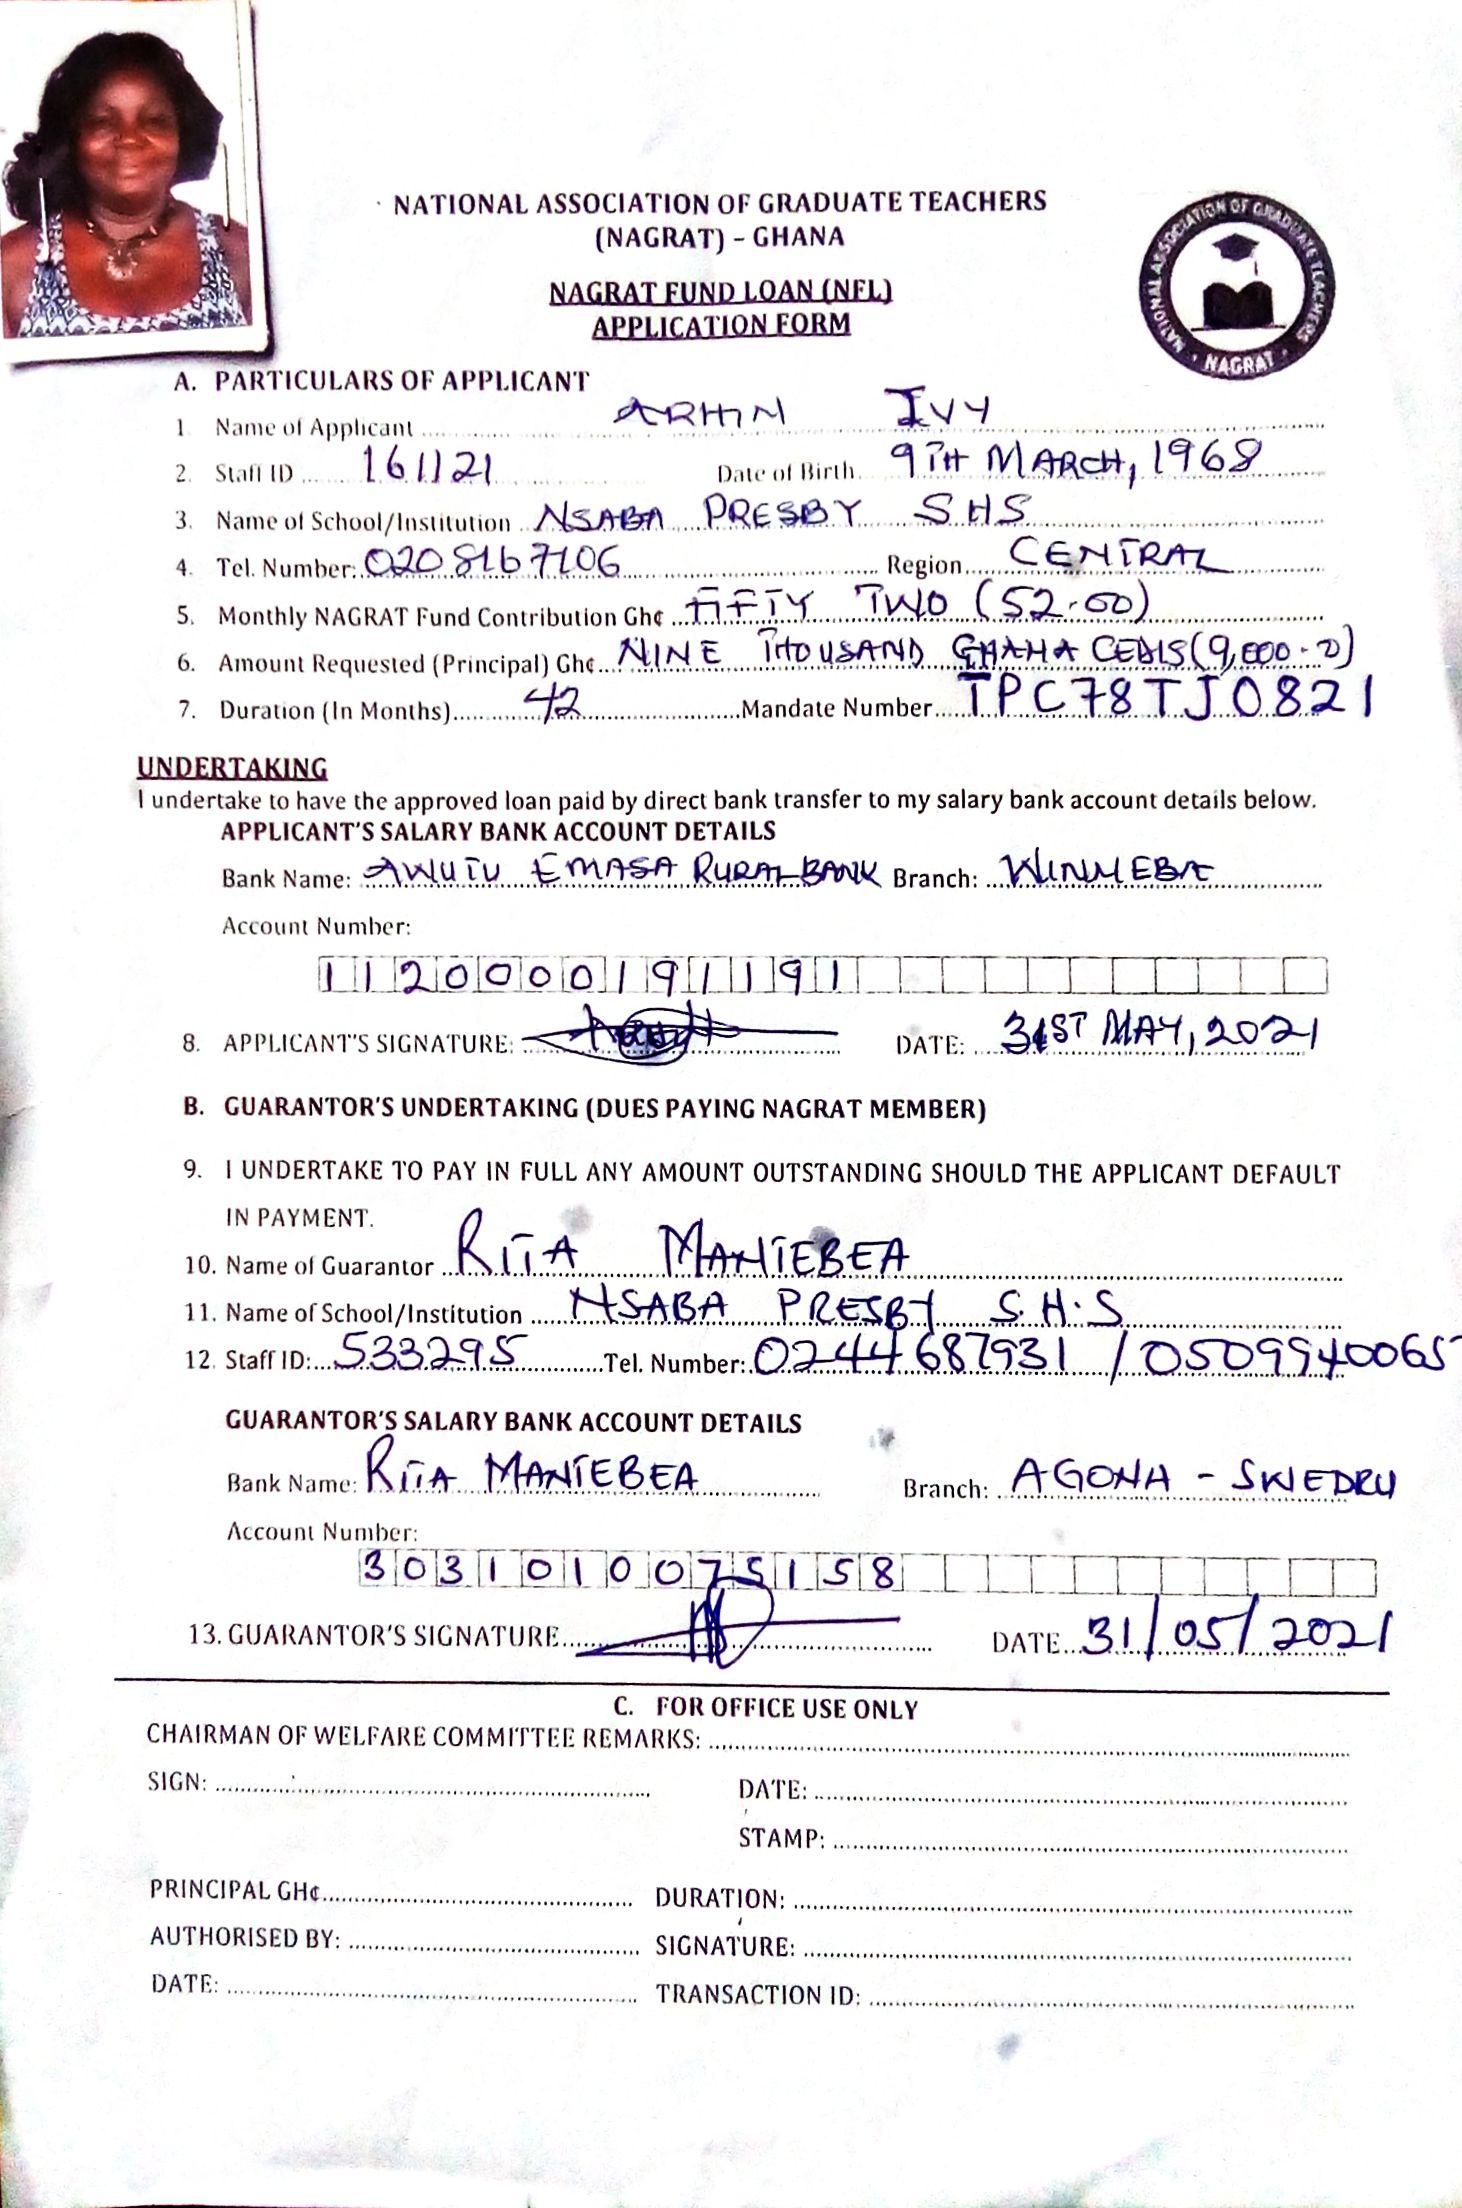 NATIONAL ASSOCIATION OF GRADUATE TEACHERS
(NAGRAT) – GHANA
NATIONAL ASSOCIATION OF GRADUATE TEACHERS
NAGRAT
NAGRAT FUND LOAN (NFL)
APPLICATION FORM
A. PARTICULARS OF APPLICANT
1 Name of Applicant ARHIN IVY
2. Staff ID 161121 Date of Birth 9TH MARCH, 1968
3. Name of School/Institution NSABA PRESBY SHS
4. Tel. Number: 0208167106 Region CENTRAL
5. Monthly NAGRAT Fund Contribution Gh¢ FIFTY TWO (52.00)
6. Amount Requested (Principal) Gh¢ NINE THOUSAND GHANA CEDIS (9,000.0)
7. Duration (In Months) 42 Mandate Number TPC78TJ0821
UNDERTAKING
I undertake to have the approved loan paid by direct bank transfer to my salary bank account details below.
APPLICANT'S SALARY BANK ACCOUNT DETAILS
Bank Name: AWUTU EMASA RURAL BANK Branch: WINNEBA
Account Number:
1120000191191
8. APPLICANT'S SIGNATURE: DATE: 31ST MAY, 2021
B. GUARANTOR'S UNDERTAKING (DUES PAYING NAGRAT MEMBER)
9. I UNDERTAKE TO PAY IN FULL ANY AMOUNT OUTSTANDING SHOULD THE APPLICANT DEFAULT
IN PAYMENT.
10. Name of Guarantor RITA MANTEBEA
11. Name of School/Institution NSABA PRESBY S.H.S
12. Staff ID: 533295 Tel. Number: 0244687931 / 0509940065
GUARANTOR'S SALARY BANK ACCOUNT DETAILS
Bank Name: RITA MANTEBEA Branch: AGONA - SWEDRU
Account Number:
3031010075158
13. GUARANTOR'S SIGNATURE DATE 31/05/2021
C. FOR OFFICE USE ONLY
CHAIRMAN OF WELFARE COMMITTEE REMARKS:
SIGN: DATE:
STAMP:
PRINCIPAL GH¢ DURATION:
AUTHORISED BY: SIGNATURE:
DATE: TRANSACTION ID: